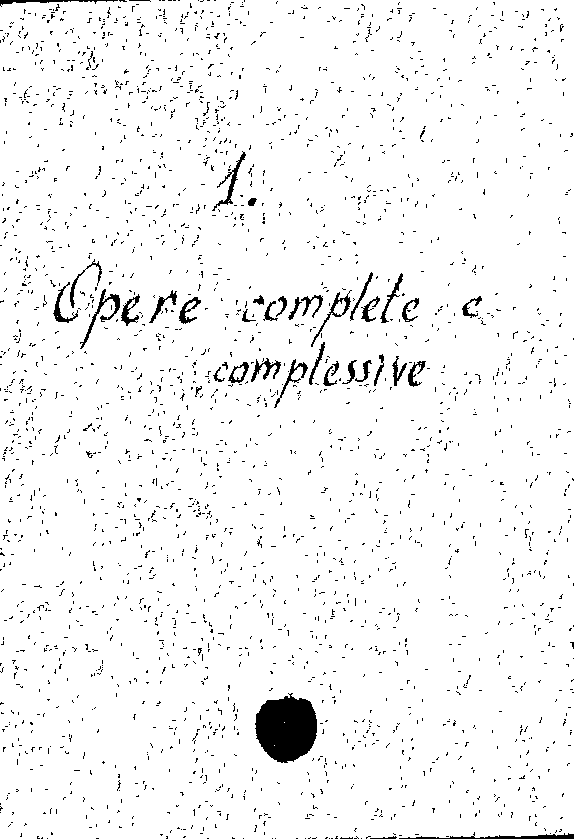 1.
Opere complete e
complessive